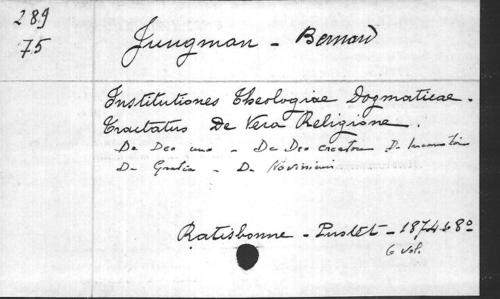 289
75
Jungman - Bernard
Institutiones Theologiae Dogmaticae.
Tractatus De Vera Religione.
De Deo uno - De Deo creatore De Incarnatione
De Gratia - De Novissimis
Ratisbonne - Pustet - 1874 8º
6 vol.